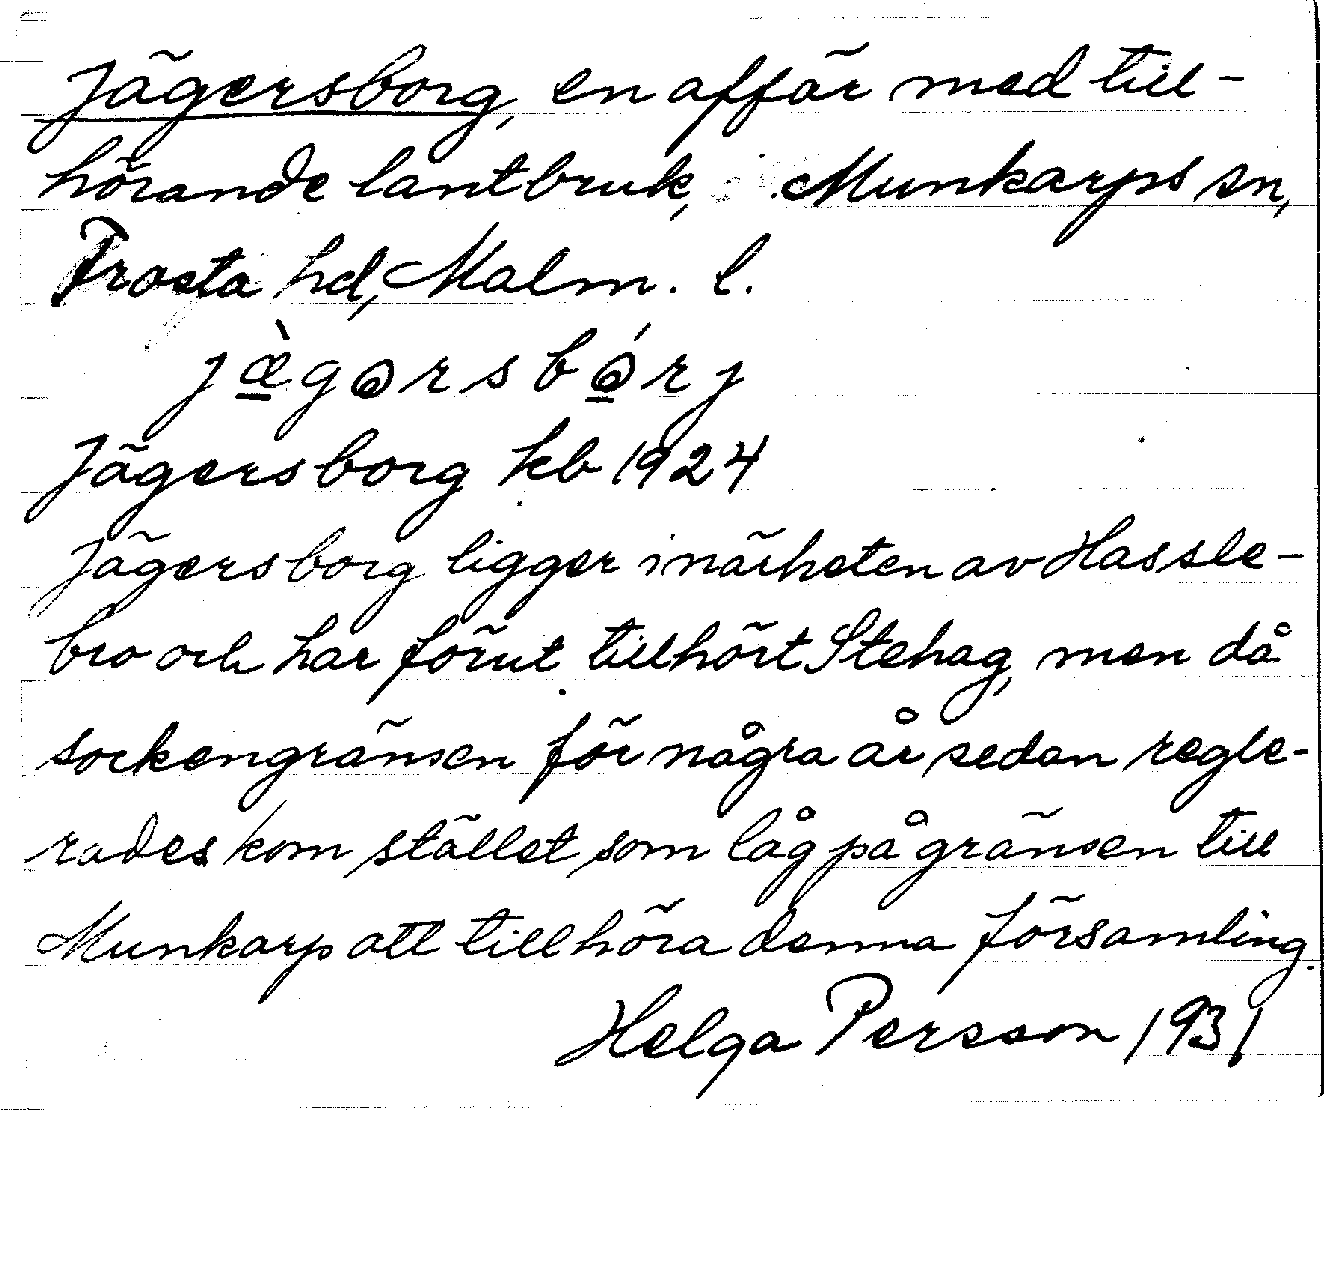 Jägersborg, en affär med till-
hörande lantbruk, Munkarps sn,
Frosta hd, Malm. l.
jæ̀gərsbórj
Jägersborg kb 1924
Jägersborg ligger i närheten av Hassle-
bro och har förut tillhört Stehag, men då
sockengränsen för några år sedan regle-
rades kom stället, som låg på gränsen till
Munkarp att tillhöra denna församling.
Helga Persson 1931